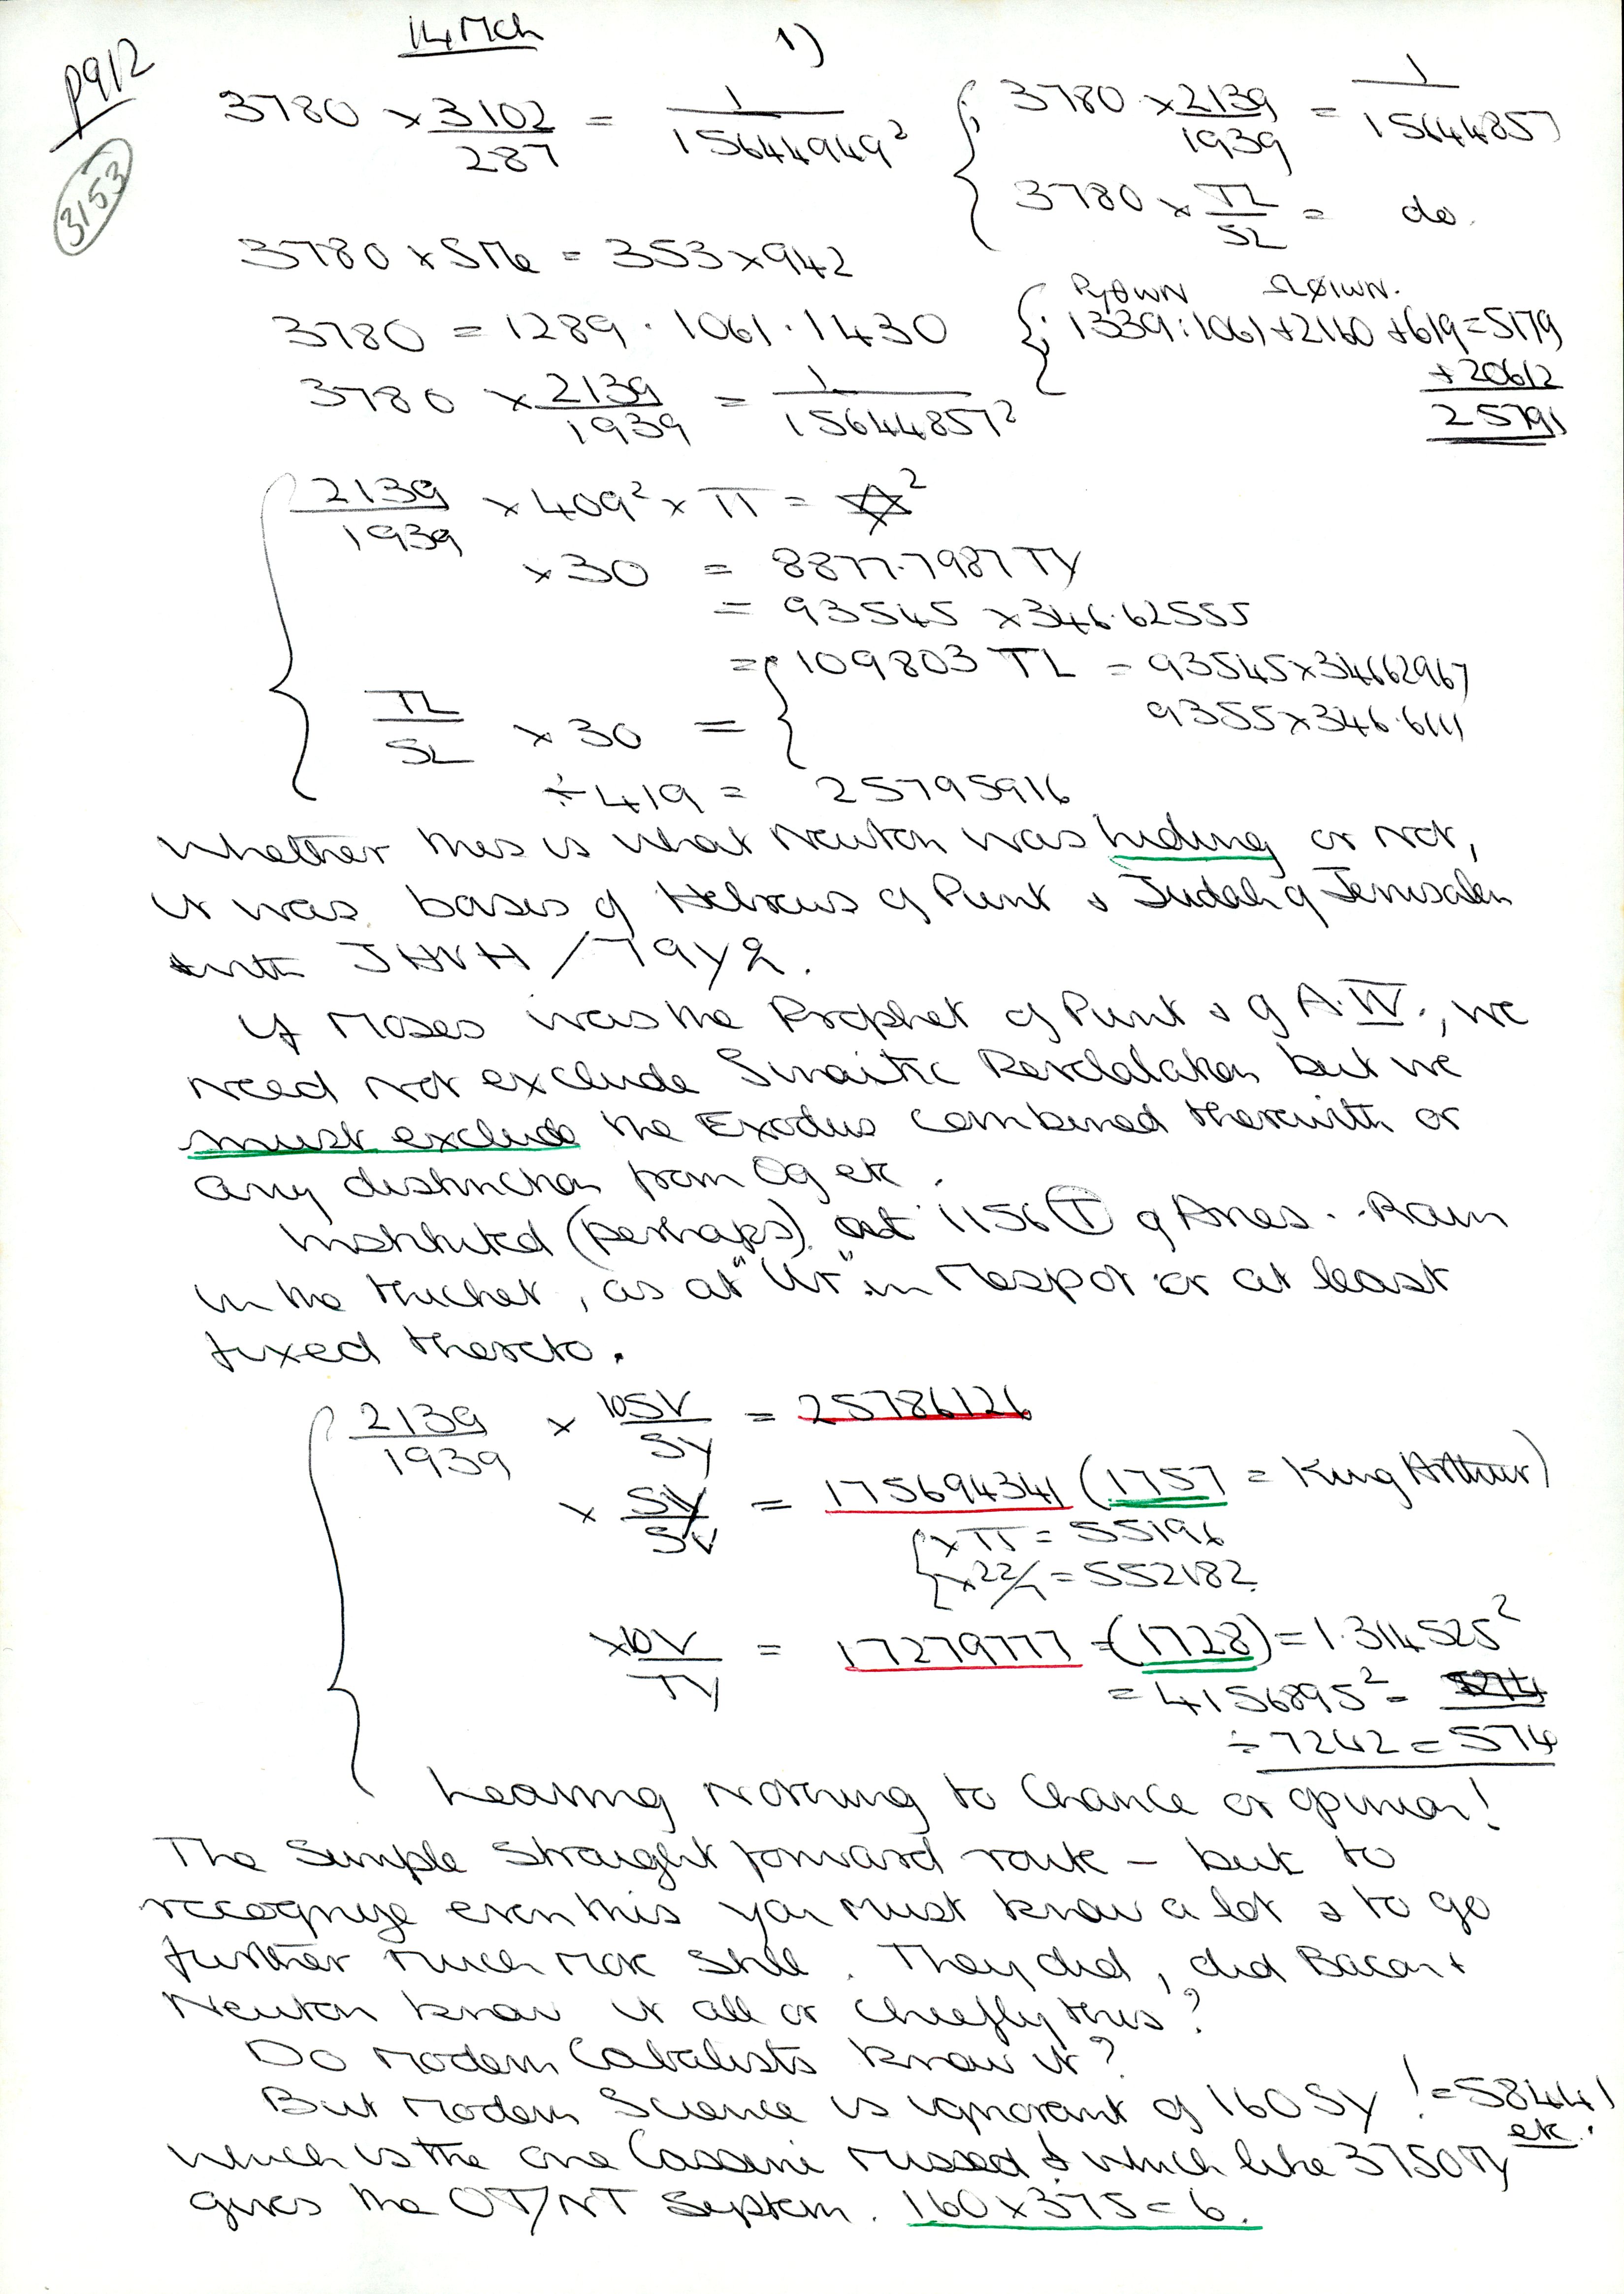 14 Mch
1)
P912
3153
3780 × 3102/287 = 1/15644949²
{ 3780 × 2139/1939 = 1/15644857
3780 × TL/SL = do.
3780 × SMe = 353 × 942
3780 = 1289 · 1061 · 1430
{ 1339 : 1061 + 2160 + 619 = 5179
+ 20612
25791
3780 × 2139/1939 = 1/15644857²
2139/1939 × 409² × π = ²
× 30 = 8877.7987 TY
= 93545 × 346.62555
= 109803 TL = 93545 × 34662967
9355 × 346.6111
TL/SL × 30 =
÷ 419 = 25795916
Whether this is what Newton was hiding or not,
it was basis of Hebrews of Punt & Judah of Jerusalem
with JHVH /
If Moses was the Prophet of Punt & of A.IV., we
need not exclude Sinaitic Revelation but we
must exclude the Exodus combined therewith or
any distinction from Og etc.
Instituted (perhaps) at 1156 (T) of Aries.. Ram
in the thicket, as at "Ur" in Mespot or at least
fixed thereto.
2139/1939 × 10SV/SY = 25786126
× SY/SV = 175694341 (1757 = King Arthur)
{ × π = 55196
× 22/7 = 552182
× 10V/TY = 17279777 = (1728) = 1.314525²
= 4156895² =
÷ 7242 = 574
Leaving Nothing to Chance or opinion!
The Simple Straight forward route – but to
recognize even this you must know a lot & to go
further much more still. They did, did Bacon +
Newton know it all or chiefly this?
Do modern Cabalists know it?
But modern Science is ignorant of 160 SY! = 58441 etc.
which is the one Cassini missed & which like 3750 TY
gives the OT/NT System. 160 × 375 = 6.